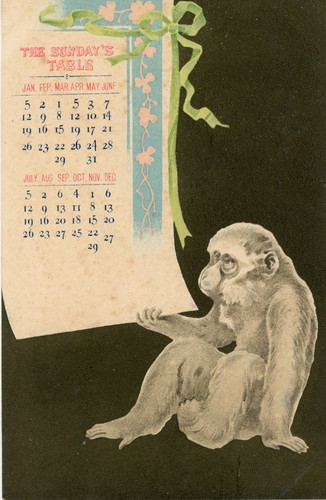 THE SUNDAY'S
TABLE
JAN. FEP. MAR APR MAY JUNE
5 2 1 5 3 7
12 9 8 12 10 14
19 16 15 19 17 21
26 23 22 26 24 28
29 31
JULY, AUG SEP. OCT. NOV. DEC
5 2 6 4 1 6
12 9 13 11 8 13
19 16 20 18 15 20
26 23 27 25 22 27
29